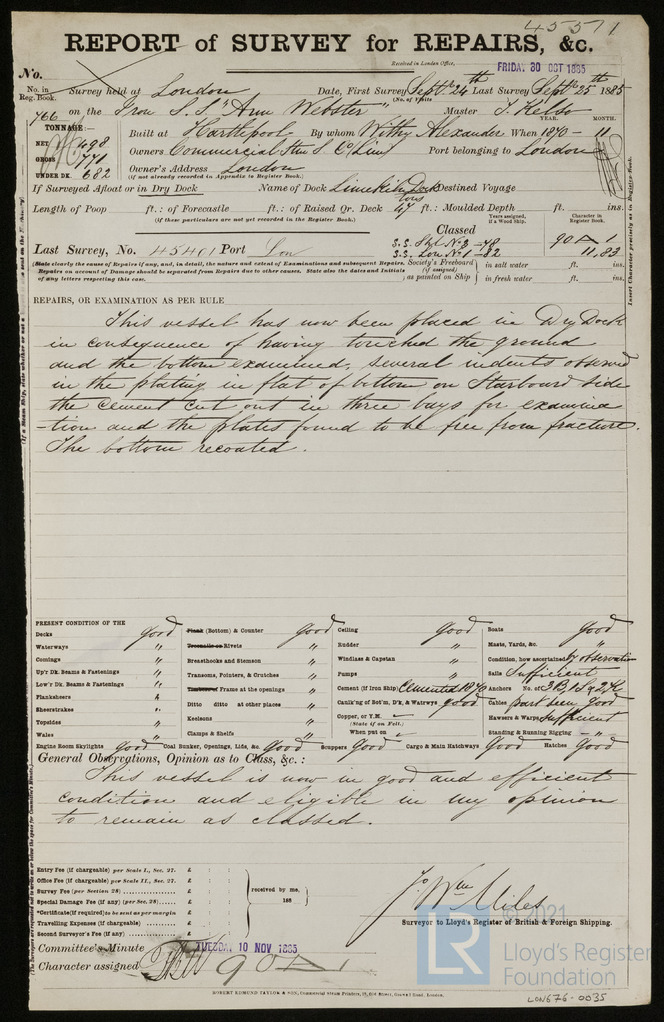 45571
REPORT of SURVEY for REPAIRS, &c.
Received in London Office, FRIDAY 30 OCT 1885
No.
No. in Reg. Book. Survey held at London Date, First Survey Septr 24th Last Survey Septr 25th 1885
(No. of Visits
766 on the Iron S.S. "Ann Webster" Master J. Kelso
TONNAGE:— YEAR. MONTH.
NET 498 Built at Hartlepool By whom Withy Alexander When 1870 - 11
GROSS 771 Owners Commercial Stm S. Co Lim Port belonging to London
UNDER DK. 682 Owner's Address London
(if not already recorded in Appendix to Register Book.)
If Surveyed Afloat or in Dry Dock Name of Dock Limekiln Dock Destined Voyage
tons
Length of Poop ft.: of Forecastle ft.: of Raised Qr. Deck 47 ft.: Moulded Depth ft. ins.
(if these particulars are not yet recorded in the Register Book.)
Years assigned, if a Wood Ship. Character in Register Book.
Classed
Last Survey, No. 45401 Port Lon S.S. Shl. No 2 -78 90 A 1
S.S. Lon. No 1 -82 11,83
(State clearly the cause of Repairs if any, and, in detail, the nature and extent of Examinations and subsequent Repairs.
Repairs on account of Damage should be separated from Repairs due to other causes. State also the dates and Initials
of any letters respecting this case.
Society's Freeboard (if assigned) as painted on Ship
in salt water ft. ins.
in fresh water ft. ins.
Insert Character precisely as in Register Book.
REPAIRS, OR EXAMINATION AS PER RULE
This vessel has now been placed in Dry Dock
in consequence of having touched the ground
and the bottom examined, several indents observed
in the plating in flat of bottom on Starboard side
the cement cut out in three bays for examina
-tion and the plates found to be free from fracture.
The bottom recoated.
PRESENT CONDITION OF THE
Decks good
Waterways "
Comings "
Up'r Dk. Beams & Fastenings "
Low'r Dk. Beams & Fastenings "
Planksheers "
Sheerstrakes "
Topsides "
Wales "
Engine Room Skylights good
Plank (Bottom) & Counter good
Treenails or Rivets "
Breasthooks and Stemson "
Transoms, Pointers, & Crutches "
Timbers or Frame at the openings "
Ditto ditto at other places "
Keelsons "
Clamps & Shelfs "
Coal Bunker, Openings, Lids, &c. good
Ceiling good
Rudder "
Windlass & Capstan "
Pumps "
Cement (if Iron Ship) Cemented 1870
Caulk'ng of Bot'm, D'k, & Waterws good
Copper, or Y.M.
(State if on Felt.)
When put on
Scuppers good Cargo & Main Hatchways good
Boats good
Masts, Yards, &c. "
Condition, how ascertained by observation
Sails Sufficient
Anchors No. of 3B, 1S, 2K
Cables part seen good
Hawsers & Warps Sufficient
Standing & Running Rigging "
Hatches good
General Observations, Opinion as to Class, &c.:
This vessel is now in good and efficient
condition and eligible in my opinion
to remain as classed.
Entry Fee (if chargeable) per Scale I., Sec. 27. £ : :
Office Fee (if chargeable) per Scale II., Sec. 27. £ : :
Survey Fee (per Section 28) £ : :
Special Damage Fee (if any) (per Sec. 28) £ : :
*Certificate (if required) to be sent as per margin £ : :
Travelling Expenses (if chargeable) £ : :
Second Surveyor's Fee (if any) £ : :
received by me,
188
Jno Wm Miles
Surveyor to Lloyd's Register of British & Foreign Shipping.
Committee's Minute TUESDAY 10 NOV 1885
Character assigned 90 A 1
ROBERT EDMUND TAYLOR & SON, Commercial Steam Printers, 19, Old Street, Goswell Road, London.
LR © 2021
Lloyd's Register
Foundation
LON676-0035